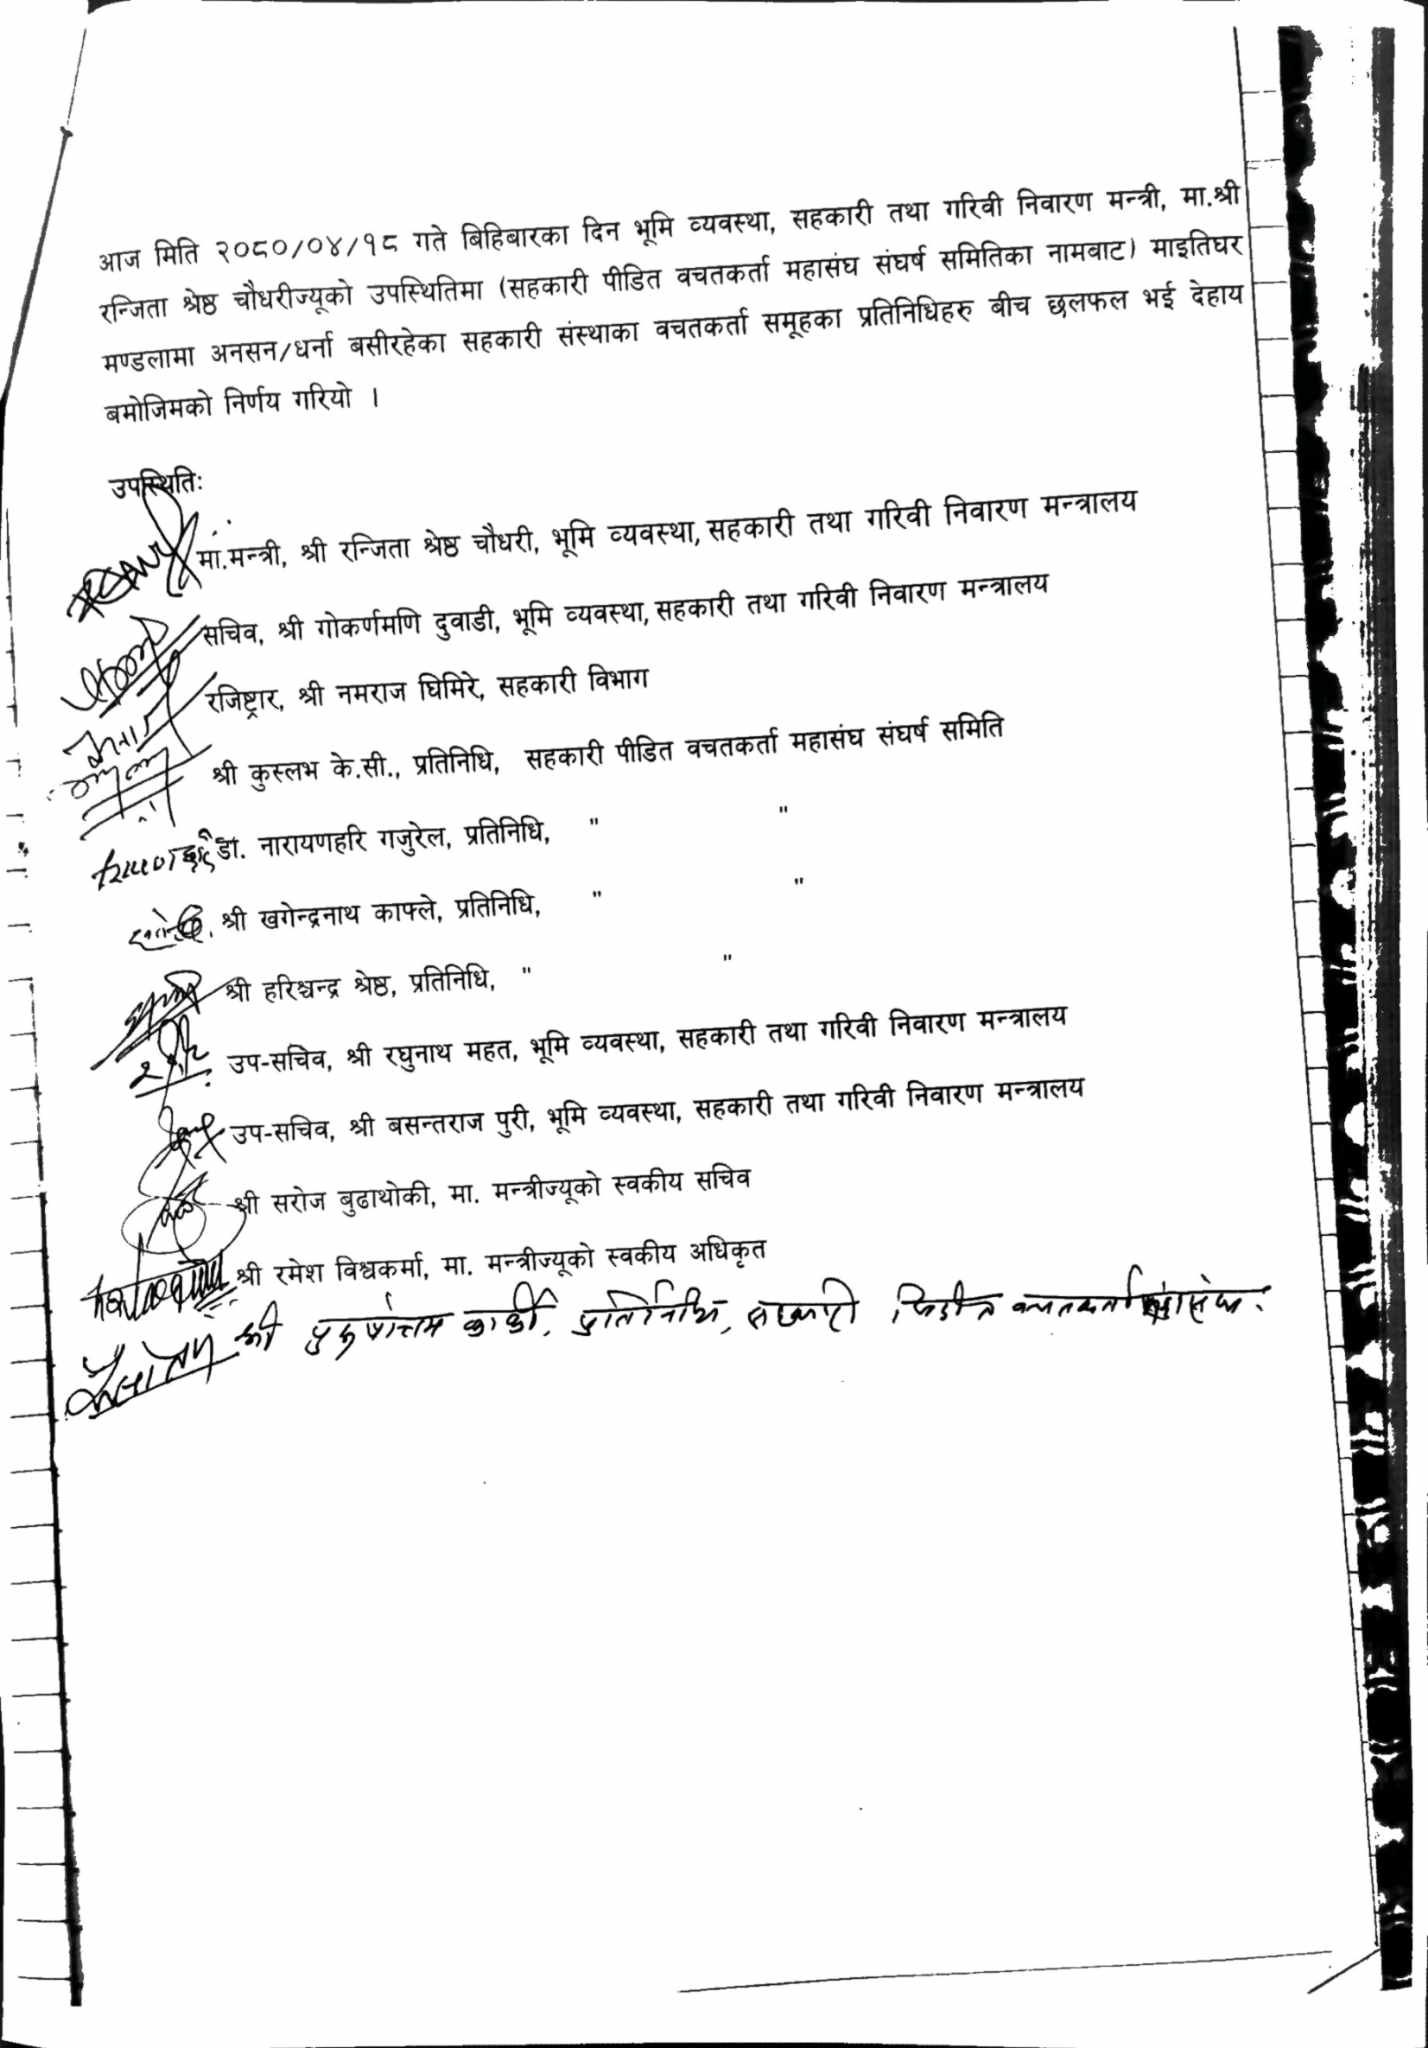 आज मिति २०८०/०४/१८ गते बिहिबारका दिन भूमि व्यवस्था, सहकारी तथा गरिवी निवारण मन्त्री, मा.श्री
रन्जिता श्रेष्ठ चौधरीज्यूको उपस्थितिमा (सहकारी पीडित वचतकर्ता महासंघ संघर्ष समितिका नामवाट) माइतिघर
मण्डलामा अनसन/धर्ना बसीरहेका सहकारी संस्थाका वचतकर्ता समूहका प्रतिनिधिहरु बीच छलफल भई देहाय
बमोजिमको निर्णय गरियो ।
उपस्थितिः
मा.मन्त्री, श्री रन्जिता श्रेष्ठ चौधरी, भूमि व्यवस्था, सहकारी तथा गरिवी निवारण मन्त्रालय
सचिव, श्री गोकर्णमणि दुवाडी, भूमि व्यवस्था, सहकारी तथा गरिवी निवारण मन्त्रालय
रजिष्ट्रार, श्री नमराज घिमिरे, सहकारी विभाग
श्री कुस्लभ के.सी., प्रतिनिधि, सहकारी पीडित वचतकर्ता महासंघ संघर्ष समिति
डा. नारायणहरि गजुरेल, प्रतिनिधि, " "
श्री खगेन्द्रनाथ काफ्ले, प्रतिनिधि, " "
श्री हरिश्चन्द्र श्रेष्ठ, प्रतिनिधि, " "
उप-सचिव, श्री रघुनाथ महत, भूमि व्यवस्था, सहकारी तथा गरिवी निवारण मन्त्रालय
उप-सचिव, श्री बसन्तराज पुरी, भूमि व्यवस्था, सहकारी तथा गरिवी निवारण मन्त्रालय
श्री सरोज बुढाथोकी, मा. मन्त्रीज्यूको स्वकीय सचिव
श्री रमेश विश्वकर्मा, मा. मन्त्रीज्यूको स्वकीय अधिकृत
श्री पुरुषोत्तम कार्की, प्रतिनिधि, सहकारी पिडीत वचतकर्ता महासंघ.